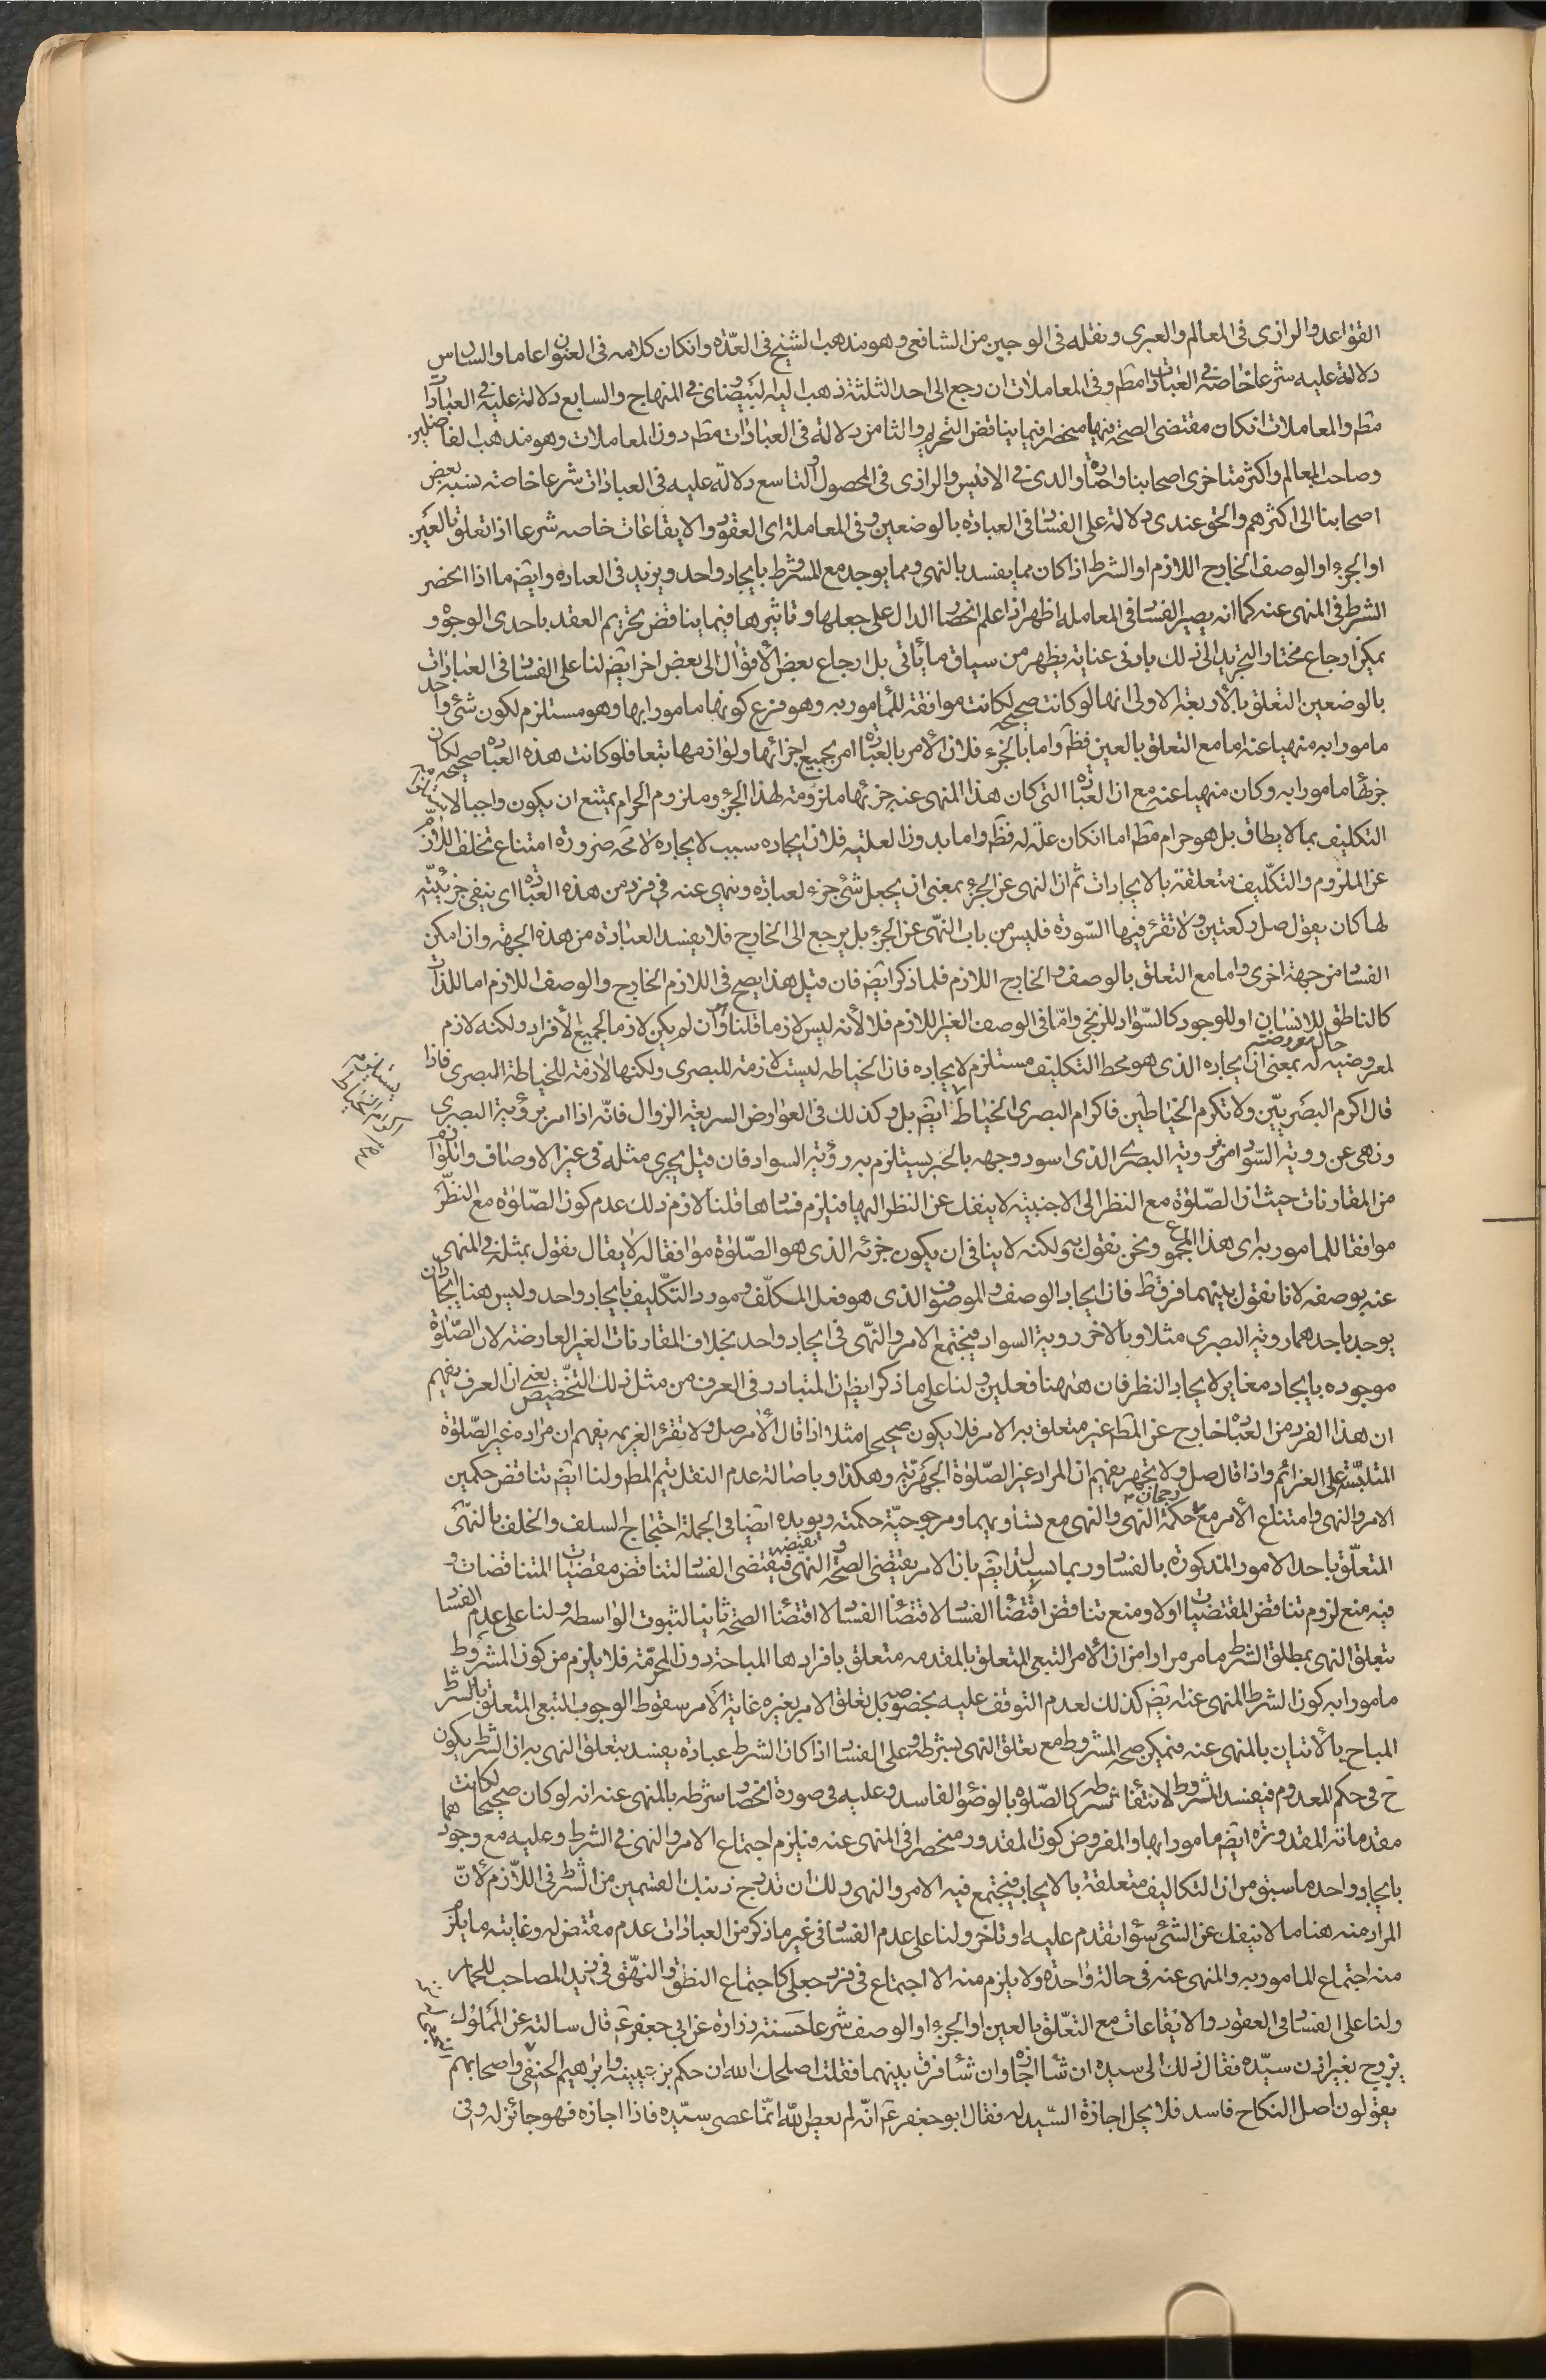 القواعد والرازى فى المعالم والعبرى ونقله فى الوجيز من الشافعى وهو مذهب الشيخ فى العدّة وانكان كلامه فى العنوان عاما والسادس
دلالة عليه شرعا خاصة فى العبادات مطم وفى المعاملات ان رجع الى احد الثلثة ذهب ليه البيضاوى فى المنهاج والسابع دلالة عليه فى العبادات
مطم والمعاملات انكان مقتضى الصحة فيها منحصرا فيما يناقض التحريم والثامن دلالة فى العبادات مطم دون المعاملات وهو مذهب الفاضلين
وصاحب المعالم واكثر متاخرى اصحابنا واختاره والدى فى الانيس والرازى فى المحصول والتاسع دلالة عليه فى العبادات شرعا خاصة نسبه بعض
اصحابنا الى اكثرهم والحق عندى دلالة على الفساد فى العبادة بالوضعين وفى المعاملة اى العقود والايقاعات خاصه شرعا اذا تعلق بالعين
او الجزء او الوصف الخارج اللازم او الشرط اذا كان مما يفسد بالنهى ومما يوجد مع المشروط بايجاد واحد ويزيد فى العبادة وايضا ما اذا انحصر
الشرط فى المنهى عنه كما انه يصير الفساد فى المعاملة اظهر اذا علم انحصار الدال على جعلها وتاثيرها فيما يناقض تحريم العقد باحدى الوجوه و
يمكن ارجاع مختار التجريد الى ذلك بادنى عناية يظهر من سياق ما يأتى بل ارجاع بعض الاقوال الى بعض اخر ايضا لنا على الفساد فى العبادات
بالوضعين التعلق بالأربعة الاولى انها لو كانت صحيحه لكانت موافقة للمأمور به وهو فرع كونها مامورا بها وهو مستلزم لكون شئ واحد
مامورا به منهيا عنه اما مع التعلق بالعين فظ واما بالجزء فلان الأمر بالعبادة امر بجميع اجزائها ولوازمها تبعا فلو كانت هذه العبادة صحيحة لكان
جزئها مامورا به وكان منهيا عنه مع ان العبادة التى كان هذا المنهى عنه جزئها ملزومة لهذا الجزء وملزوم الحرام يمتنع ان يكون واجبا لاستلزامه
التكليف بما لا يطاق بل هو حرام مطم اما انكان علة له فظ واما بدون العلية فلان ايجاده سبب لايجاده لا محة ضرورة امتناع تخلف اللازم
عن الملزوم والتكليف متعلقة بالايجادات ثم ان النهى عن الجزء بمعنى ان يجعل شئ جزء لعبادة ونهى عنه فى فرد من هذه العبادة اى ينفى جزئيته
لها كان يقول صل ركعتين ولا تقرء فيها السورة فليس من باب النهى عن الجزء بل يرجع الى الخارج فلا يفسد العبادة من هذه الجهة وان امكن
الفساد من جهة اخرى واما مع التعلق بالوصف والخارج اللازم فلما ذكر ايضا فان قيل هذا يصح فى اللازم الخارج والوصف اللازم اما للذات
كالناطق للانسان او للوجود كالسواد للزنجى وامّا فى الوصف الغير اللازم فلا لأنه ليس لازما قلنا وان لم يكن لازما لجميع الأفراد ولكنه لازم
حال معروضيته
لمعروضيه له بمعنى ان ايجاده الذى هو محط التكليف مستلزم لايجاده فان الخياطه ليست لازمة للبصرى ولكنها لازمة للخياطة البصرى فاذا
قال اكرم البصريّين ولا تكرم الخياطين فاكرام البصرى الخياط ايضا بل وكذلك فى العوارض السريعة الزوال فانّه اذا امر برؤية البصرى
ونهى عن رؤية السواد من رؤية البصرى الذى اسود وجهه بالحبر يستلزم به رؤية السواد فان قيل يجرى مثله فى غير الاوصاف واللوازم
من المقارنات حيث ان الصلوة مع النظر الى الاجنبية لا ينفك عن النظر اليها فيلزم فسادها قلنا لازم ذلك عدم كون الصّلوة مع النظر
موافقا للمامور به اى هذا المجموع ونحن نقول به ولكنه لا ينافى ان يكون جزئه الذى هو الصّلوة موافقا له لا يقال نقول بمثله فى المنهى
عنه بوصفه لانا نقول بينهما فرق ظ فان ايجاد الوصف والموصوف الذى هو فعل المكلّف ومورد التكليف بايجاد واحد وليس هنا ايجادان
يوجد باحدهما رؤية البصرى مثلا وبالاخر رؤية السواد فيجتمع الامر والنهى فى ايجاد واحد بخلاف المقارنات الغير العارضة لان الصّلوة
موجوده بايجاد مغاير لايجاد النظر فان ههنا فعلين ولنا على ما ذكر ايضا ان المتبادر فى العرف من مثل ذلك التخصيص يعنى ان العرف يفهم
ان هذا الفرد من العبادة خارج عن المطم غير متعلق به الامر فلا يكون صحيحا مثلا اذا قال الأمر صل ولا تقرء العزيمه يفهم ان مراده غير الصّلوة
المتلبّسة على العزائم واذا قال صل ولا تجهر يفهم ان المراد غير الصّلوة الجهريّة وهكذا وباصالة عدم النقل يتم المطم ولنا ايضا تناقض حكمين
رجحان
الامر والنهى وامتناع الأمر مع حكمة النهى والنهى مع تساويهما ومرجوحيّة حكمته ويويده ايضا فى الجملة احتجاج السلف والخلف بالنهى
المتعلّق باحد الامور المذكورة بالفساد وربما يستدل ايضا بان الامر يقتضى الصحة والنهى نقيضه فيقتضى الفساد لتناقض مقتضيات المتناقضات و
فيه منع لزوم تناقض المقتضيات اولا ومنع تناقض اقتضاء الفساد لاقتضاء الفساد لا اقتضاء الصحة ثانيا لثبوت الواسطه ولنا على عدم الفساد
بتعلق النهى بمطلق الشرط ما مر مرارا من ان الأمر التبعى المتعلق بالمقدمه متعلق بافرادها المباحة دون المحرّمة فلا يلزم من كون المشروط
مامورا به كون الشرط المنهى عنه ايضا كذلك لعدم التوقف عليه بخصوصه بل تعلق الامر بغيره غاية الأمر سقوط الوجوب التبعى المتعلق بالشرط
المباح بالأتيان بالمنهى عنه فيمكن صحة المشروط مع تعلق النهى بشرطه وعلى الفساد اذا كان الشرط عبادة يفسد بتعلق النهى به ان الشرط يكون
ح فى حكم المعدوم فيفسد المشروط لانتفاء شرطه كالصّلوة بالوضوء الفاسد وعليه فى صورة انحصار شرطه بالمنهى عنه انه لو كان صحيحا لكانت
مقدماته المقدورة ايضا مامورا بها والمفروض كون المقدور منحصرا فى المنهى عنه فيلزم اجتماع الامر والنهى فى الشرط وعليه مع وجودهما
بايجاد واحد ما سبق من ان التكاليف متعلقة بالايجاد فيجتمع فيه الامر والنهى ولك ان تدرج ذينك القسمين من الشرط فى اللازم لأنّ
المراد منه هنا ما لا ينفك عن الشئ سواء تقدم عليه او تاخر ولنا على عدم الفساد فى غير ما ذكر من العبادات عدم مقتض له وغايته ما يلزم
منه اجتماع المامور به والمنهى عنه فى حالة واحدة ولا يلزم منه الا اجتماع فى فرد جعلى كاجتماع النطق والنهق فى زيد المصاحب للحمار
ولنا على الفساد فى العقود والايقاعات مع التعلّق بالعين او الجزء او الوصف شرعا حسنة زرارة عن ابى جعفر ع قال سالته عن المملوك
يزوج بغير اذن سيّده فقال ذلك الى سيده ان شاء اجازه وان شاء فرق بينهما فقلت اصلحك الله ان حكم بن عيينة وابراهيم الحنفى واصحابهم
يقولون اصل النكاح فاسد فلا يحل اجازة السّيد له فقال ابو جعفر ع انّه لم يعص الله انّما عصى سيّده فاذا اجازه فهو جائز له وفى